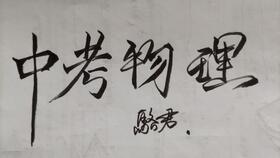 中考物理
骏君.